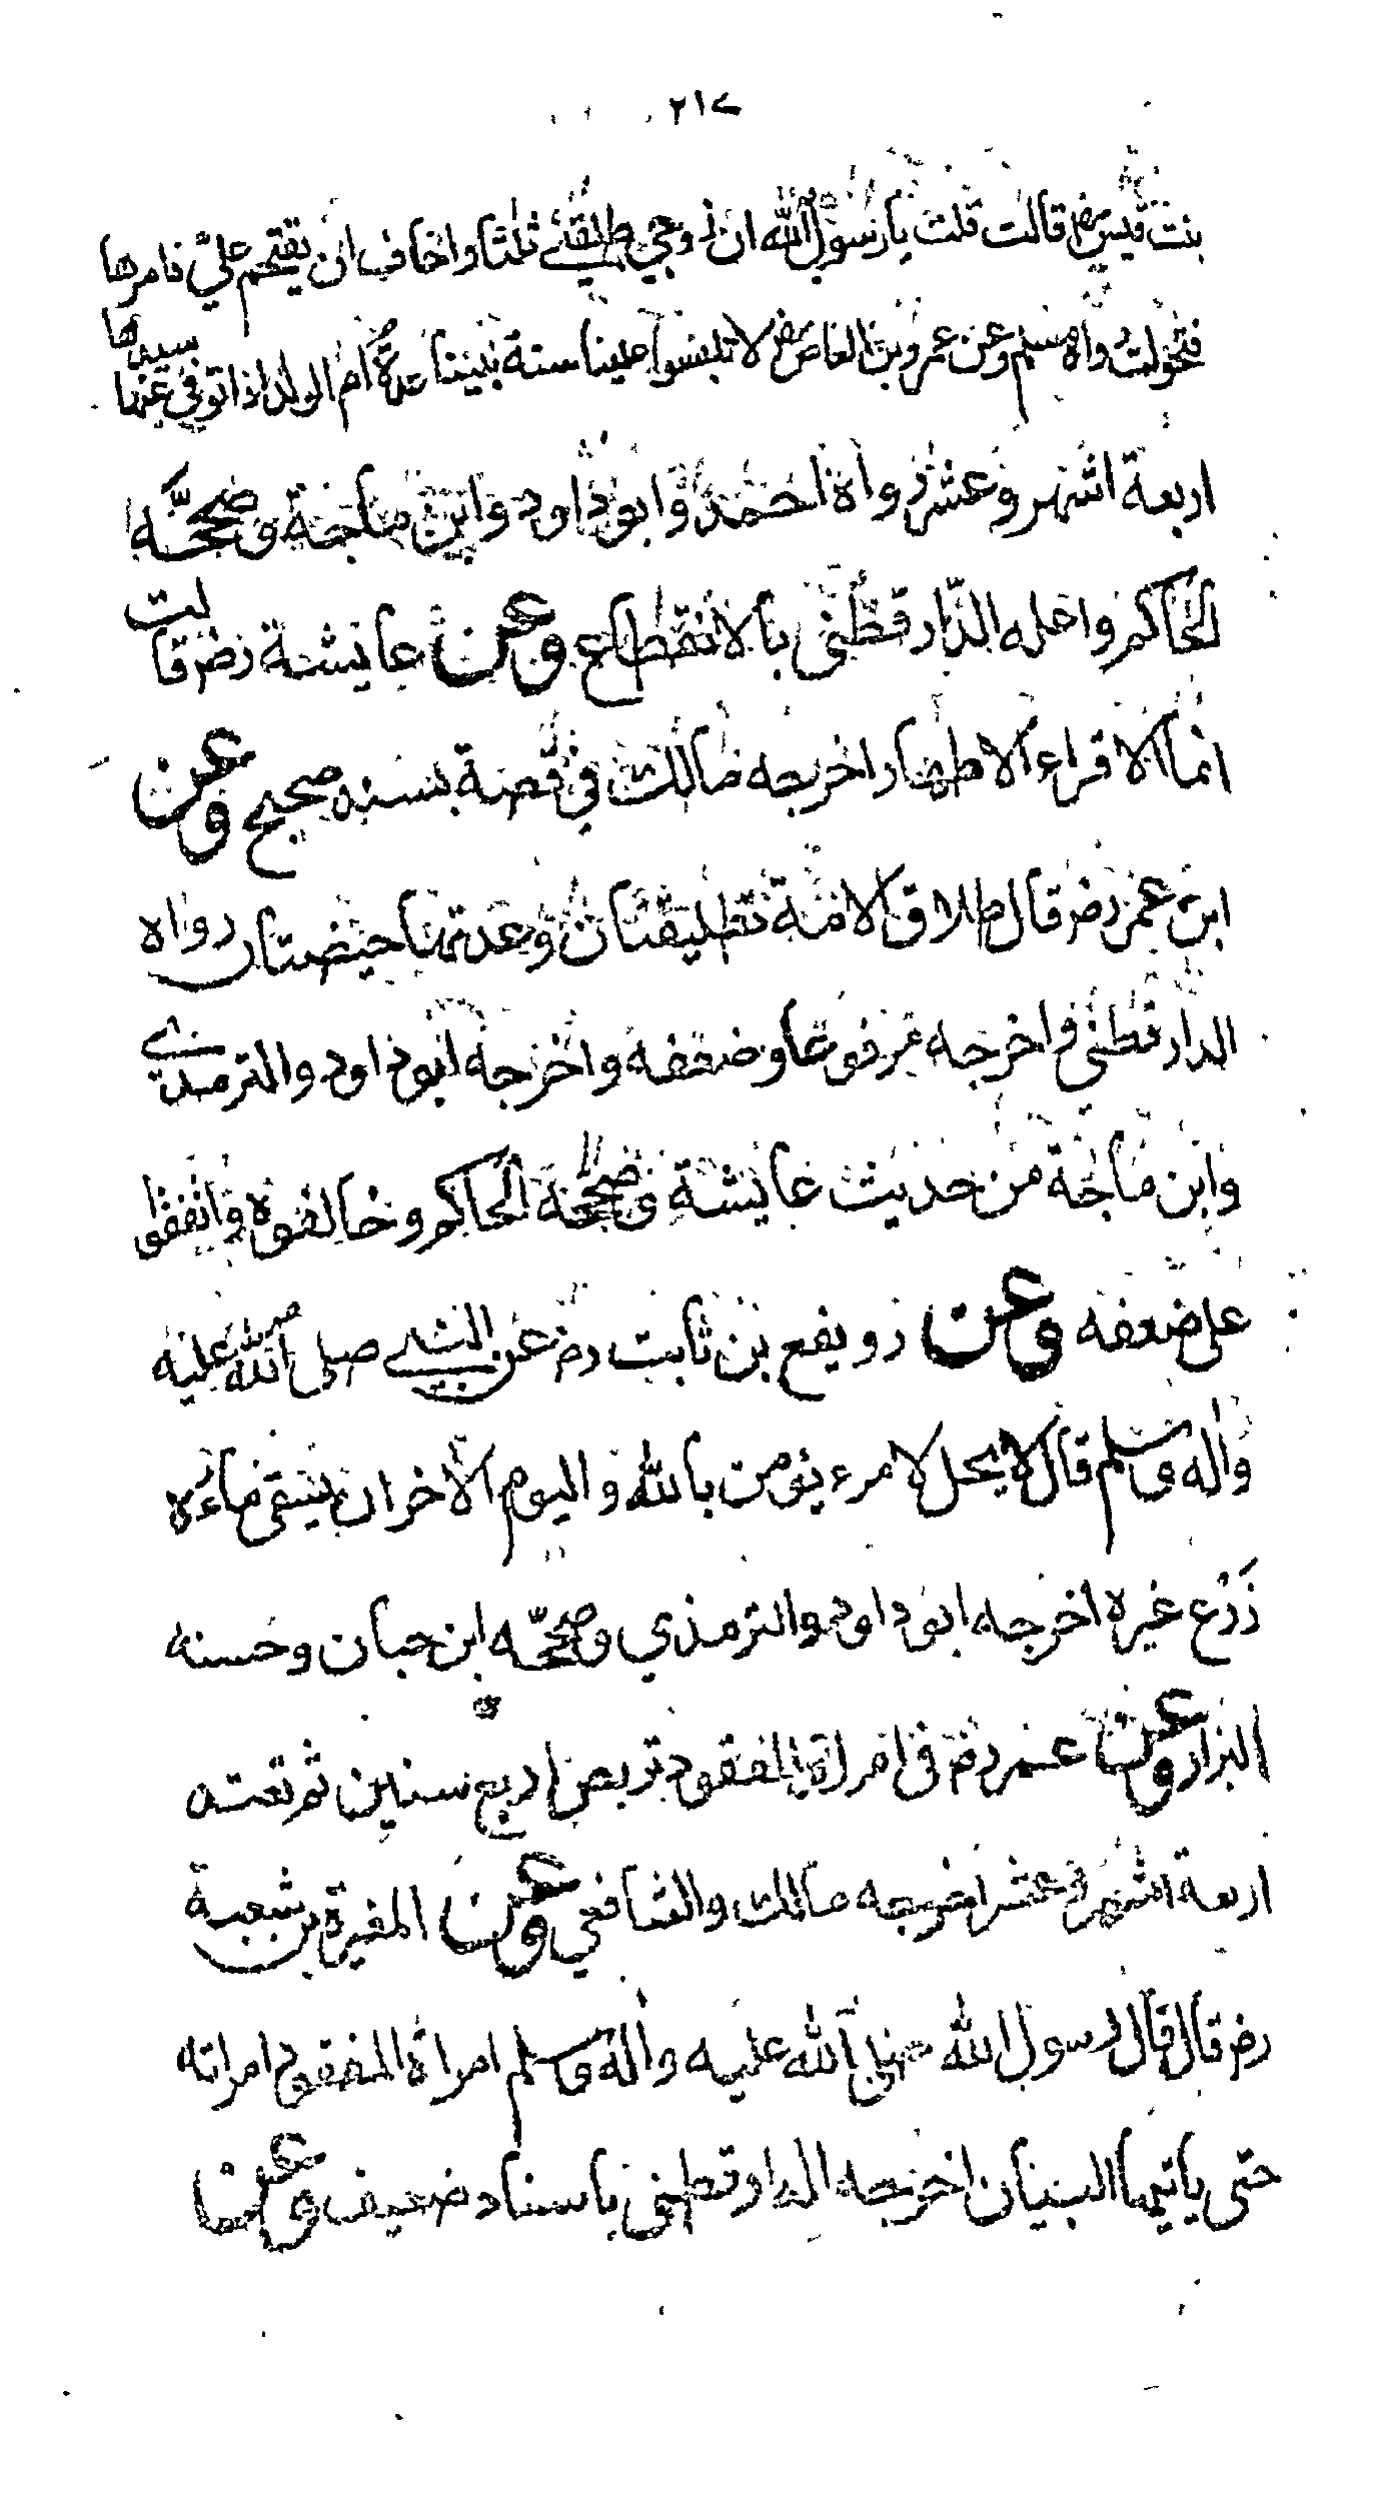 ٢١٧
بنت قيس رض قالت قلت يا رسول الله ان زوجي طلقني ثلثا واخاف ان يقتحم علي فامرها
فتحولت رواه مسلم وعن عمرو بن العاص رض لا تلبسوا علينا سنة نبينا عدة ام الولد اذا توفى عنها سيدها
اربعة اشهر وعشر رواه احمد وابو داود وابن ماجة وصححه
الحاكم واعله الدارقطني بالانقطاع وعن عايشة رضر قالت
انما الاقراء الاطهار اخرجه مالك في قصة بسند صحيح وعن
ابن عمر رضر قال طلاق الامة تطليقتان وعدتها حيضتان رواه
الدارقطني واخرجه مرفوعا وضعفه واخرجه ابو داود والترمذي
وابن ماجة من حديث عايشة وصححه الحاكم وخالفوه واتفقوا
على ضعفه وعن رويفع بن ثابت رض عن النبي صلى الله عليه
واله وسلم قال لا يحل لامرء يؤمن بالله واليوم الاخر ان يسقى ماءه
زرع غيره اخرجه ابو داود والترمذي وصححه ابن حبان وحسنه
البزار وعن عمر رض فى امراة المفقود تربص اربع سنين ثم تعتد
اربعة اشهر وعشر اخرجه مالك والشافعي وعن المغيرة بن شعبة
رضر قال قال رسول الله صلى الله عليه واله وسلم امراة المفقود امراته
حتى ياتيها البيان اخرجه الدارقطني باسناد ضعيف وعن